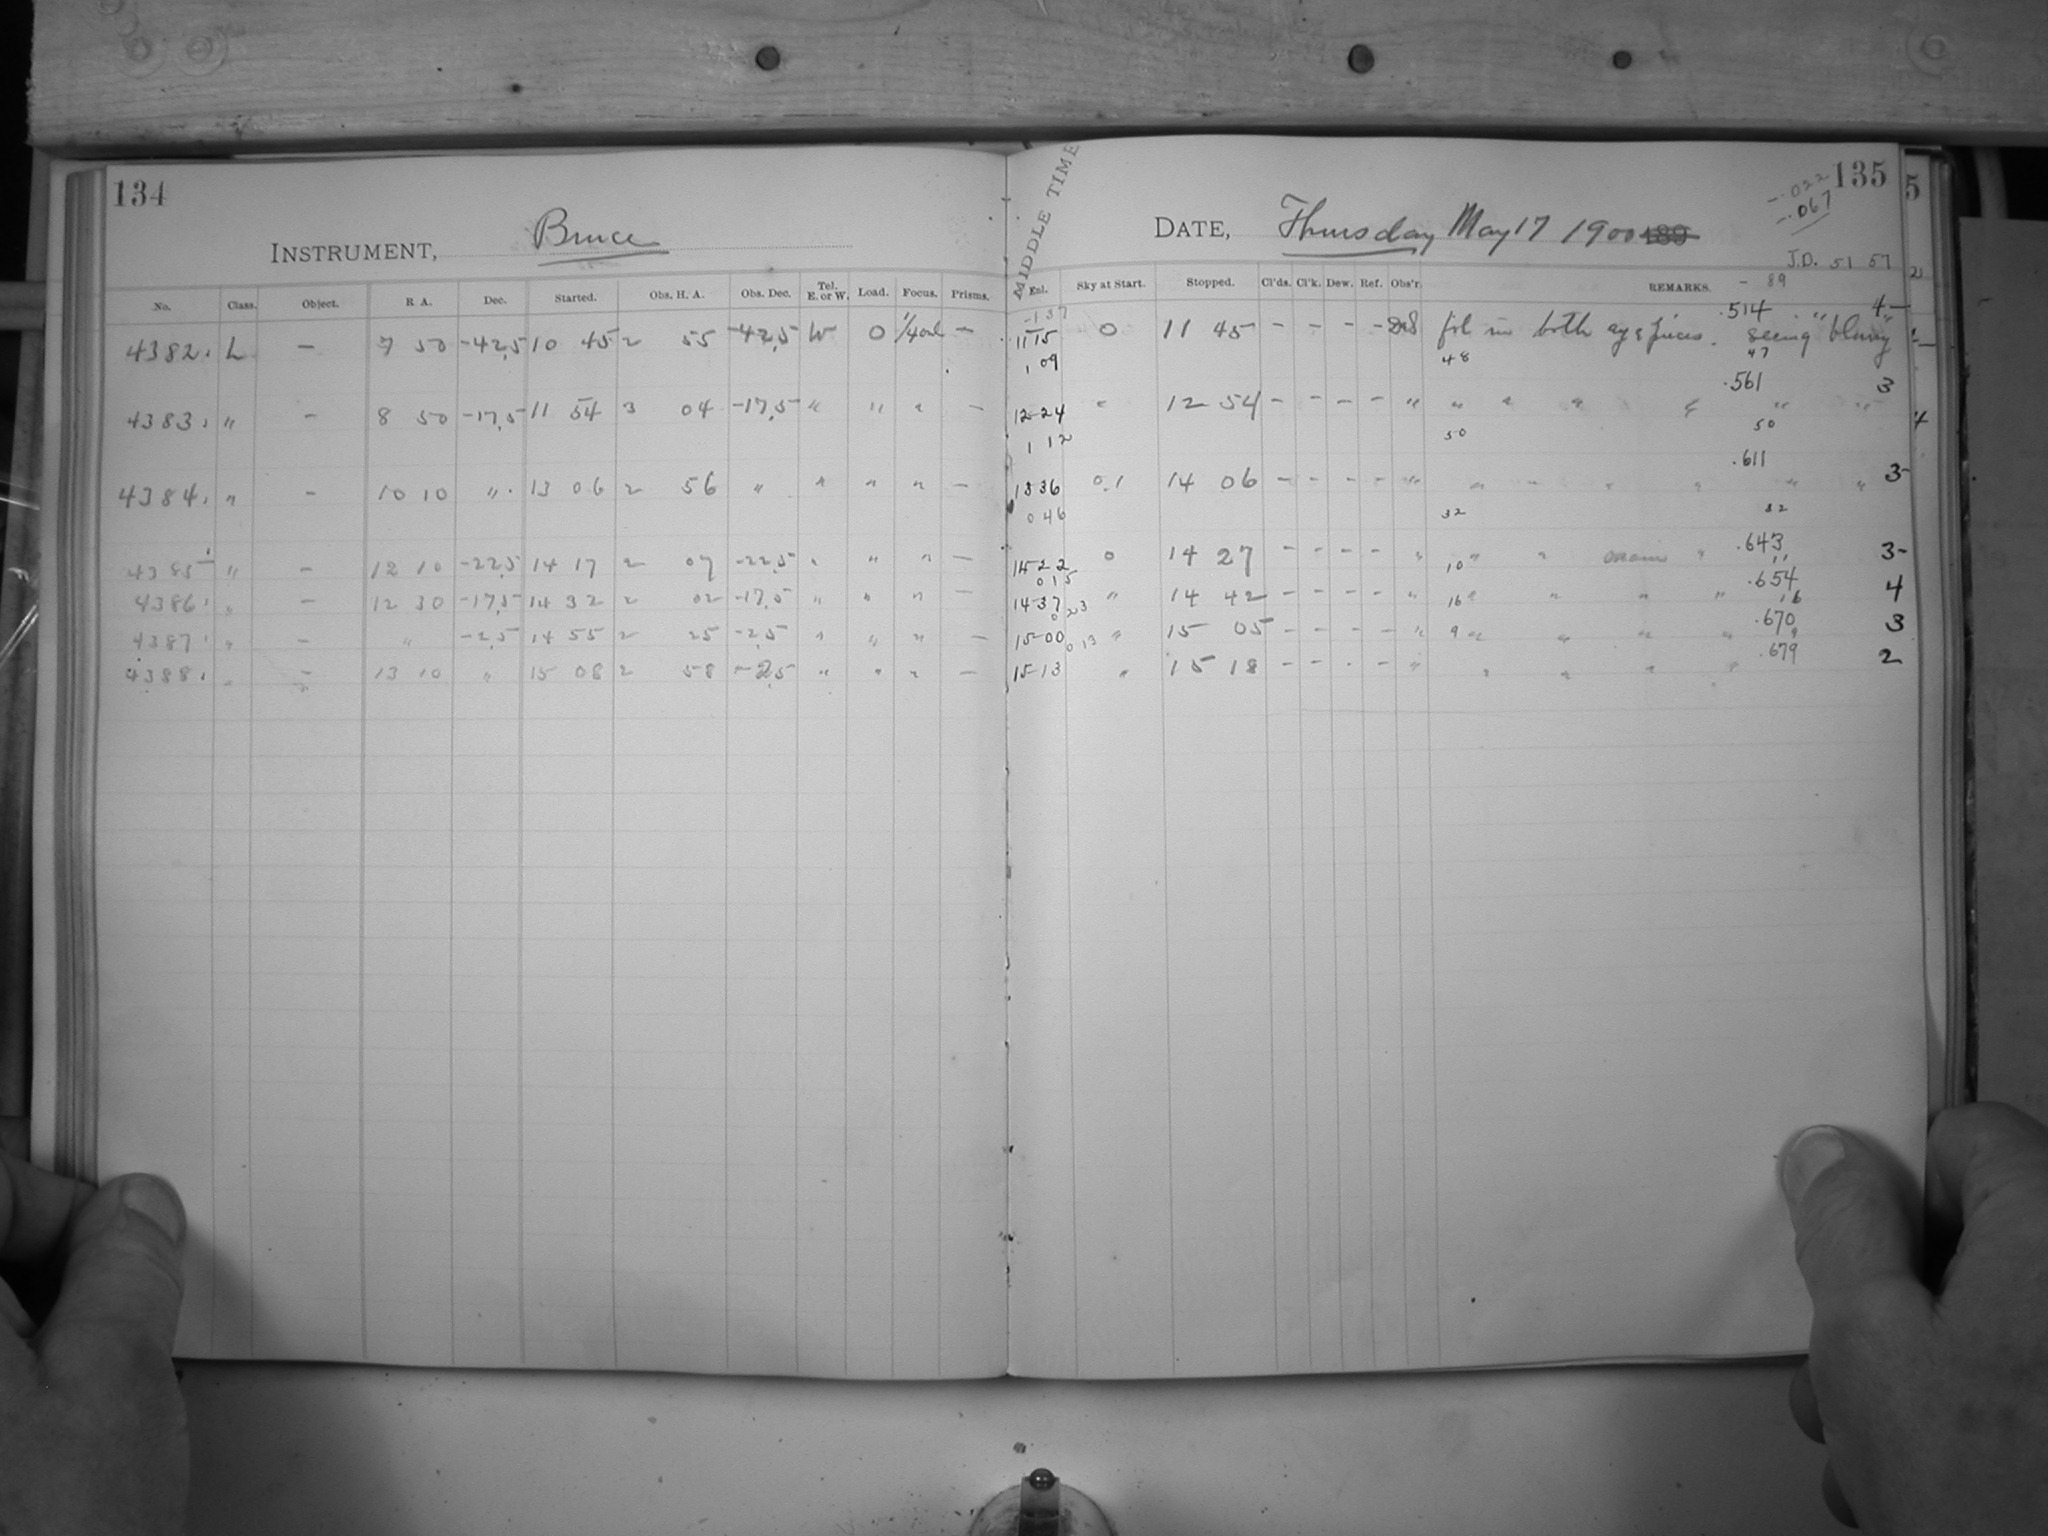 134
INSTRUMENT, Bruce
No. Class. Object. R A. Dec. Started. Obs. H. A. Obs. Dec. Tel. E. or W. Load. Focus. Prisms.
4382. L — 7 50 -42.5 10 45 2 55 -42.5 W 0 —
4383. " — 8 50 -17.5 11 54 3 04 -17.5 " " " —
4384. " — 10 10 " 13 06 2 56 " " " " —
4385 " — 12 10 -22.5 14 17 2 07 -22.5 " " " —
4386. " — 12 30 -17.5 14 32 2 02 -17.5 " " " —
4387. " — " -2.5 14 55 2 25 -2.5 " " " —
4388. " — 13 10 " 15 08 2 58 -2.5 " " " —
135
-.022
-.067
MIDDLE TIME
DATE, Thursday May 17 1900 189
J.D. 51 57
- 89
Enl. Sky at Start. Stopped. Cl'ds. Cl'k. Dew. Ref. Obs'r. REMARKS.
-137 .514 4-
11 15 0 11 45 - - - - fol in both seeing blurry
1 09 48 47
.561 3
12 24 " 12 54 - - - - " " " " " "
1 12 50 50
.611
13 36 0.1 14 06 - - - - " " " " " " 3-
0 46 32 32
.643
14 22 0 14 27 - - - - " " " " 3-
0 15 10 11
.654
14 37 " 14 42 - - - - " " " " " 4
0 23 16 16
.670
15 00 " 15 05 - - - - " " " " " 3
0 13 9 9
.679
15 13 " 15 18 - - - - " " " " " 2